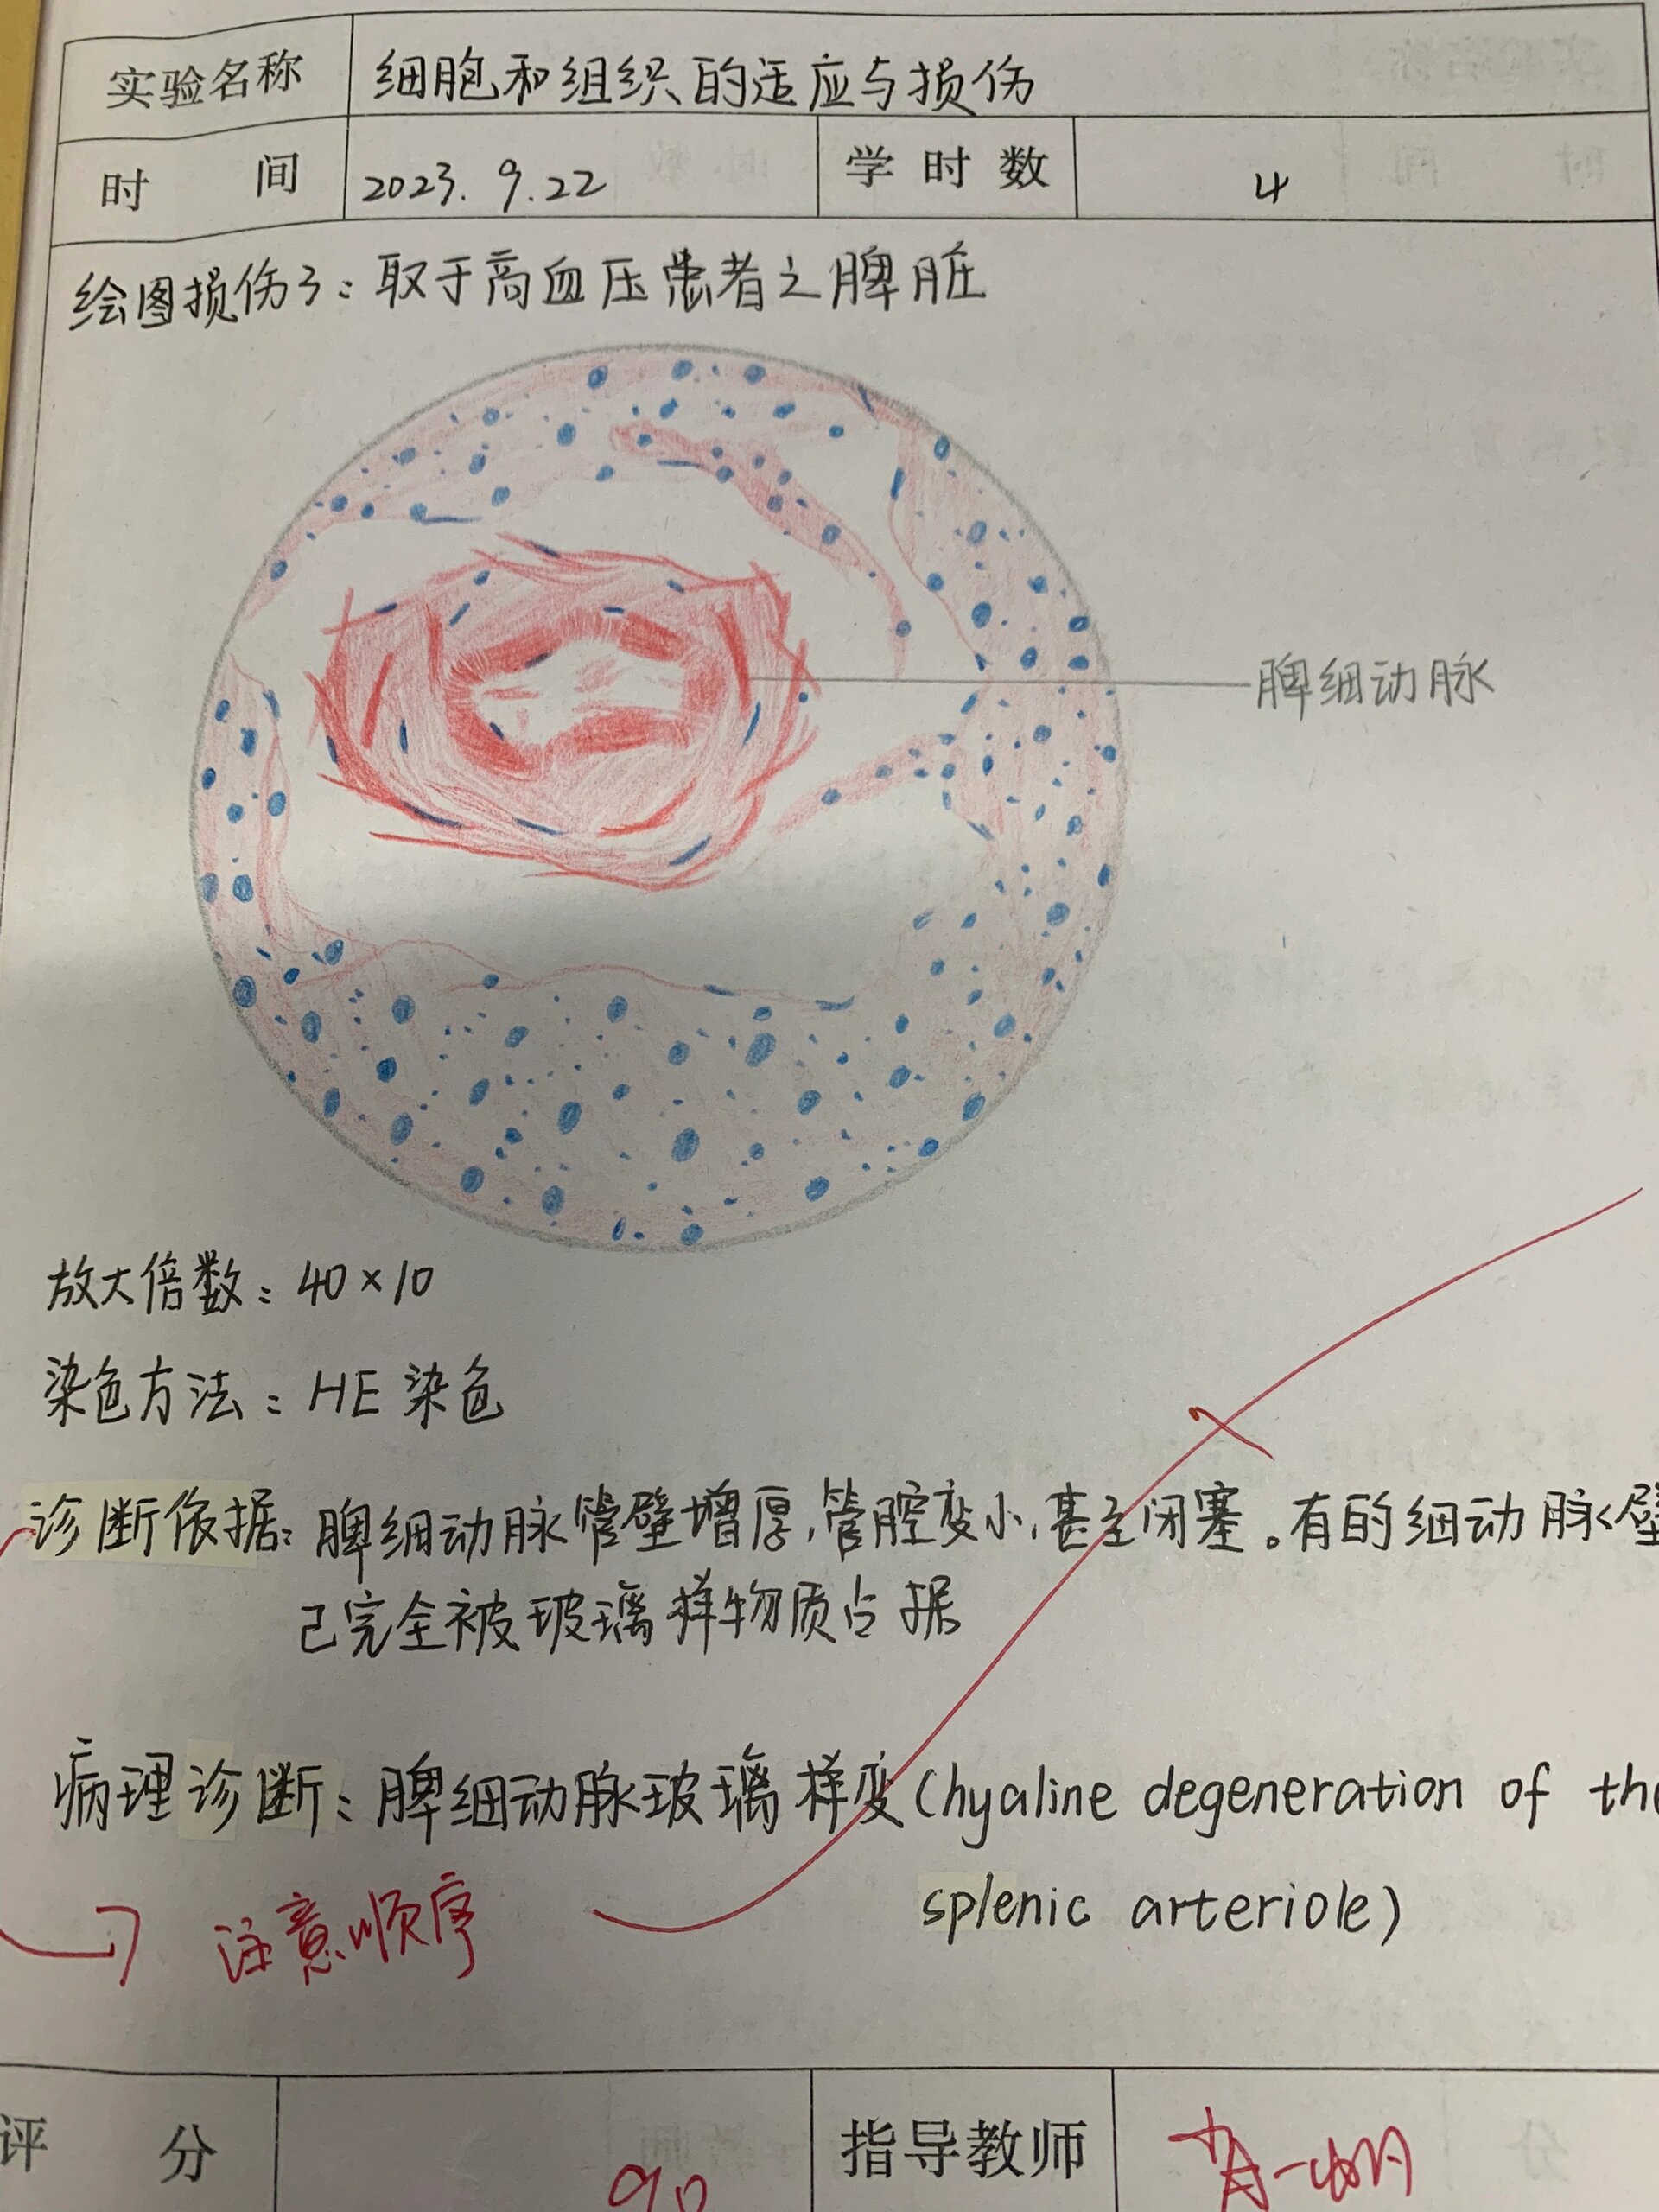 实验名称 细胞和组织的适应与损伤
时 间 2023. 9.22 学时数 4
绘图损伤3：取于高血压患者之脾脏
脾细动脉
放大倍数：40×10
染色方法：HE 染色
诊断依据：脾细动脉管壁增厚，管腔变小，甚至闭塞。有的细动脉壁
已完全被玻璃样物质占据
病理诊断：脾细动脉玻璃样变(hyaline degeneration of the
splenic arteriole)
注意顺序
评 分 90 指导教师